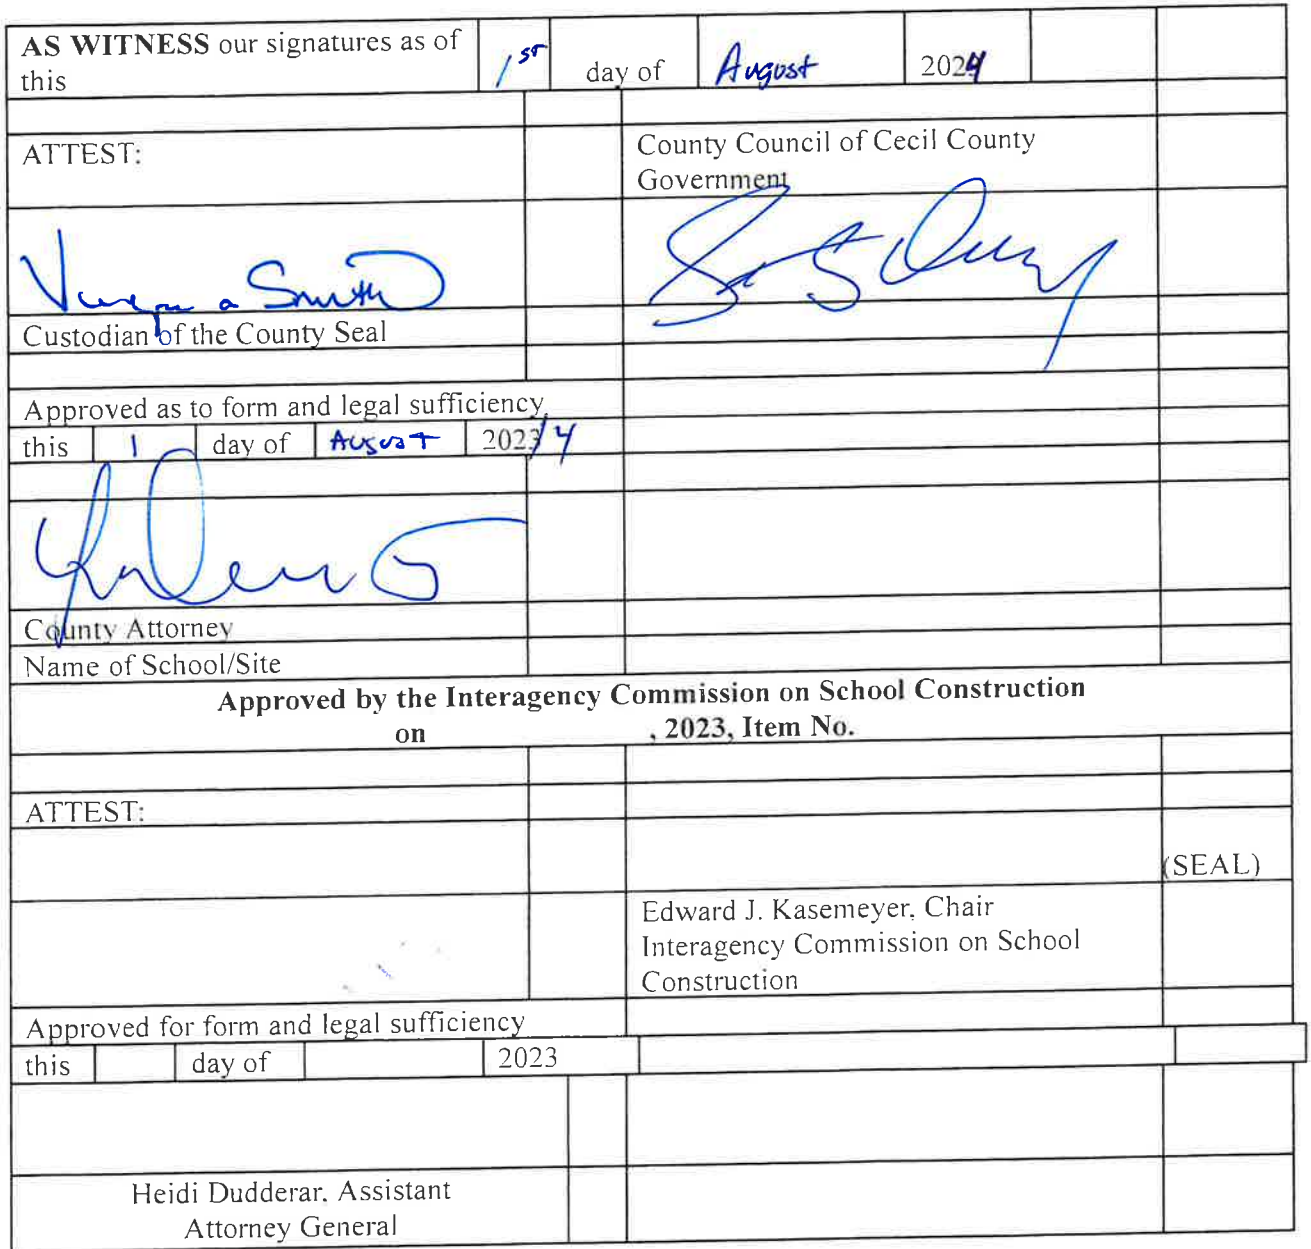 AS WITNESS our signatures as of
this 1st day of August 2024
ATTEST:
County Council of Cecil County
Government
Smith
Custodian of the County Seal
Approved as to form and legal sufficiency
this 1 day of August 2023/4
County Attorney
Name of School/Site
Approved by the Interagency Commission on School Construction
on , 2023, Item No.
ATTEST:
(SEAL)
Edward J. Kasemeyer, Chair
Interagency Commission on School
Construction
Approved for form and legal sufficiency
this day of 2023
Heidi Dudderar, Assistant
Attorney General